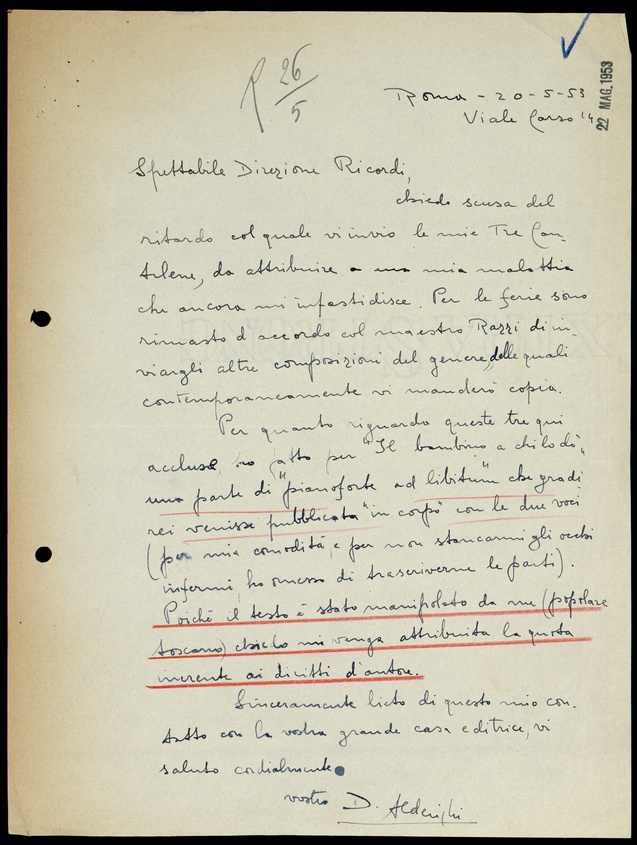 R 26/5
22 MAG. 1953
Roma - 20-5-53
Viale Carso 14
Spettabile Direzione Ricordi,
chiedo scusa del
ritardo col quale vi invio le mie Tre Can-
tilene, da attribuire a una mia malattia
che ancora mi infastidisce. Per le ferie sono
rimasto d'accordo col maestro Razzi di in-
viargli altre composizioni del genere, delle quali
contemporaneamente vi manderò copia.
Per quanto riguardo queste tre qui
accluse, ho fatto per "Il bambino a chi lo dò"
una parte di "pianoforte ad libitum" che gradi
rei venisse pubblicata "in corpo" con le due voci
(per mia comodità, e per non stancarmi gli occhi
infermi, ho omesso di trascriverne le parti).
Poichè il testo è stato manipolato da me (popolare
toscano) chiedo mi venga attribuita la quota
inerente ai diritti d'autore.
Sinceramente lieto di questo mio con-
tatto con la vostra grande casa editrice, vi
saluto cordialmente.
vostro D. Alderighi